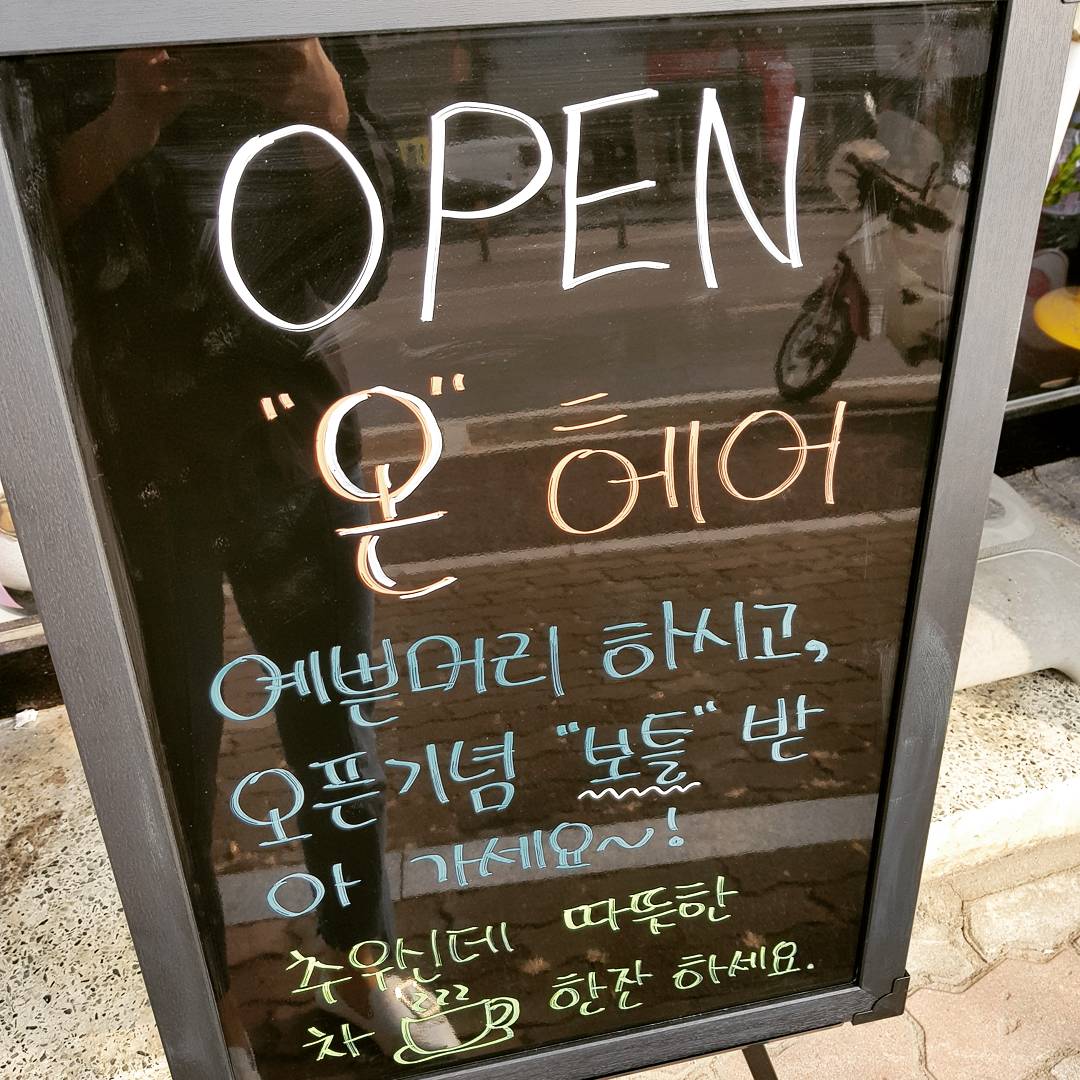 OPEN
"온" 헤어
예쁜머리 하시고,
오픈기념 "보틀" 받
아 가세요~!
추우신데 따뜻한
차 한잔 하세요.